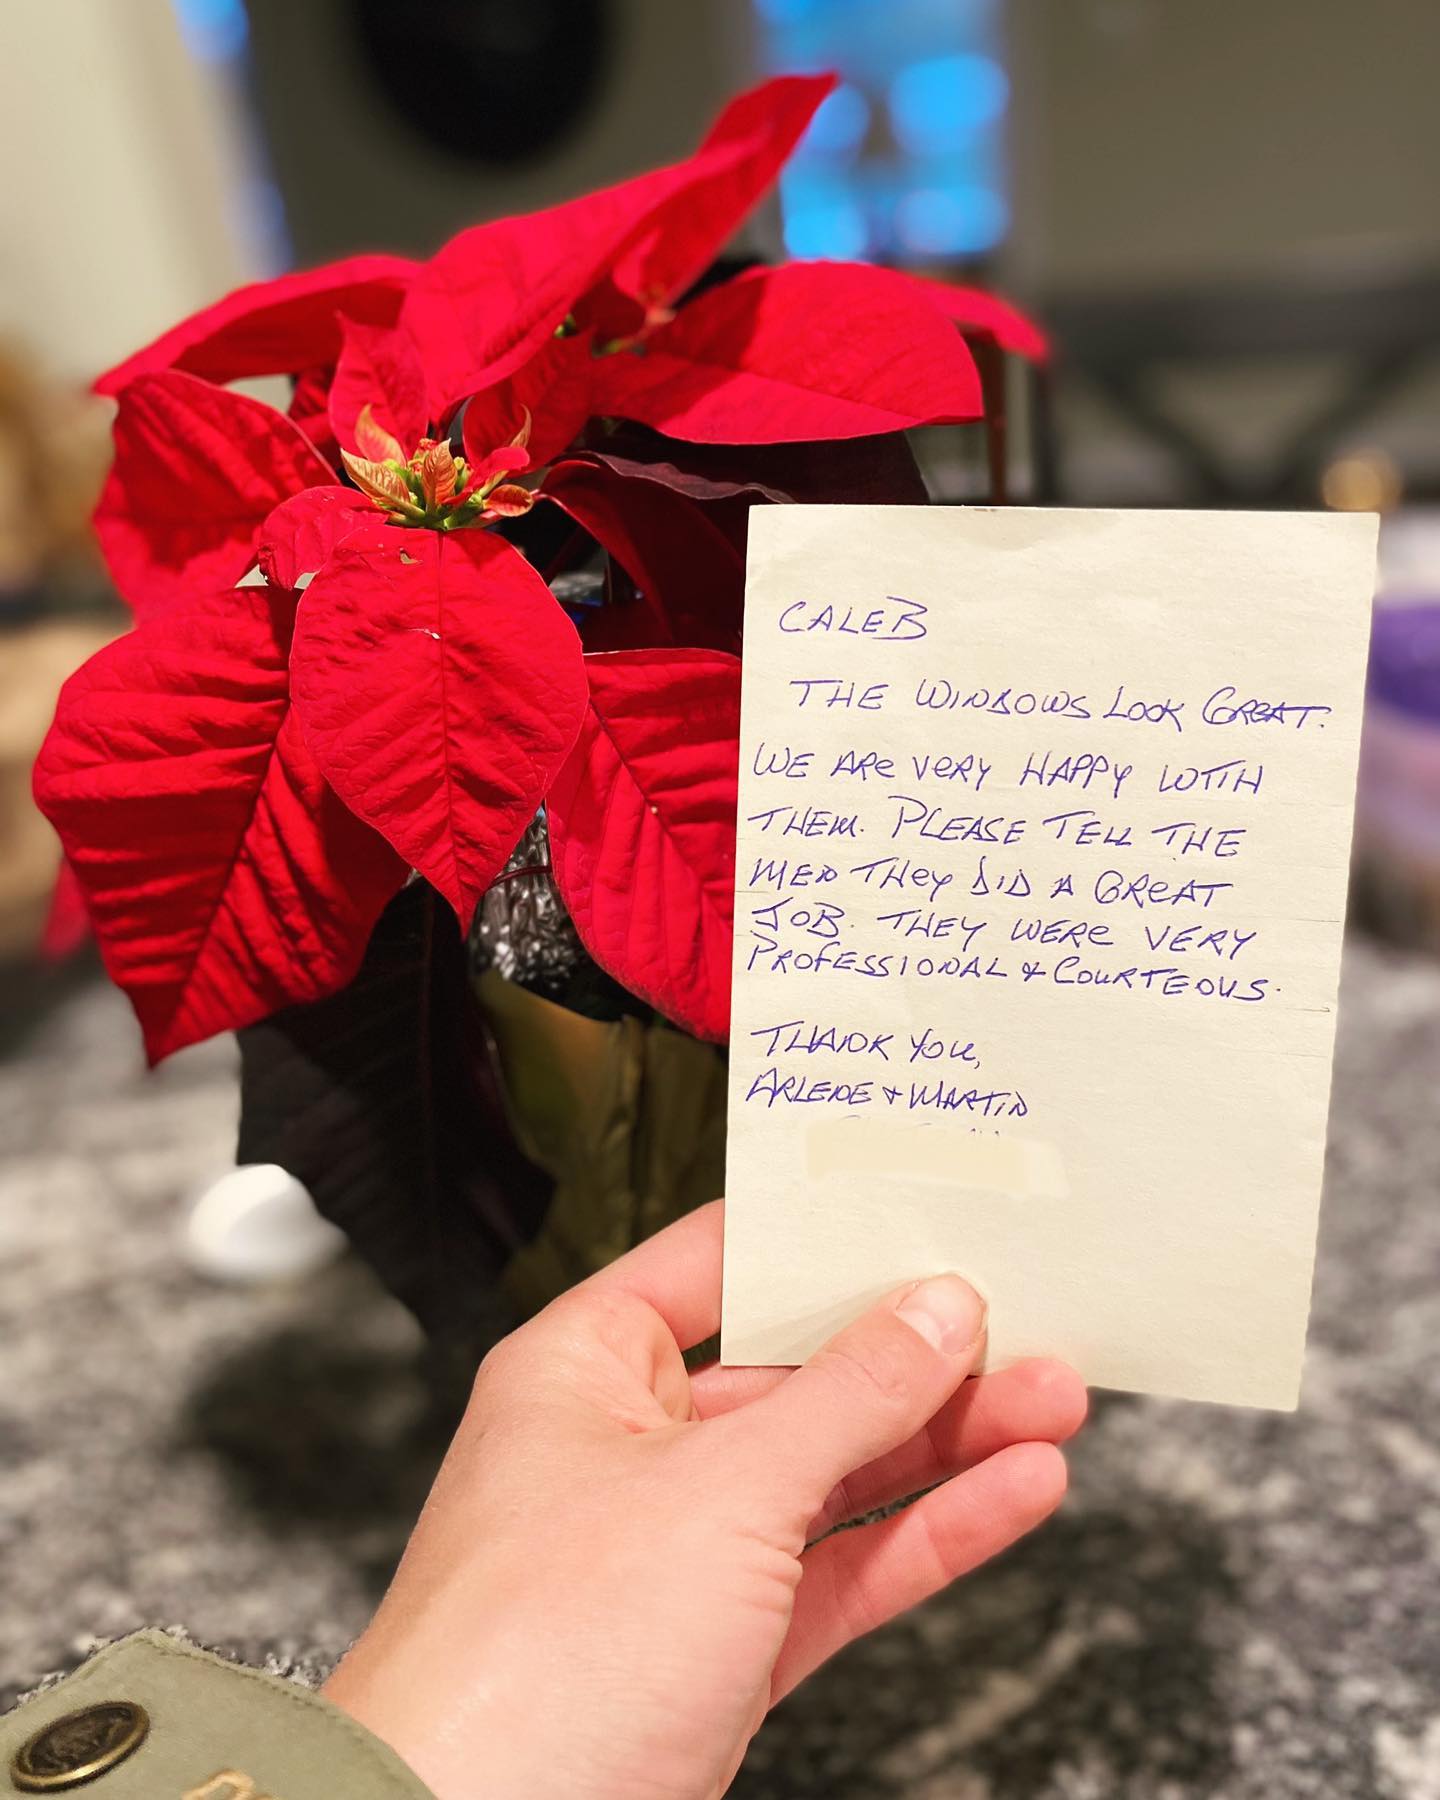 CALEB
THE WINDOWS LOOK GREAT.
WE ARE VERY HAPPY WITH
THEM. PLEASE TELL THE
MEN THEY DID A GREAT
JOB. THEY WERE VERY
PROFESSIONAL & COURTEOUS.
THANK YOU,
ARLENE & MARTIN